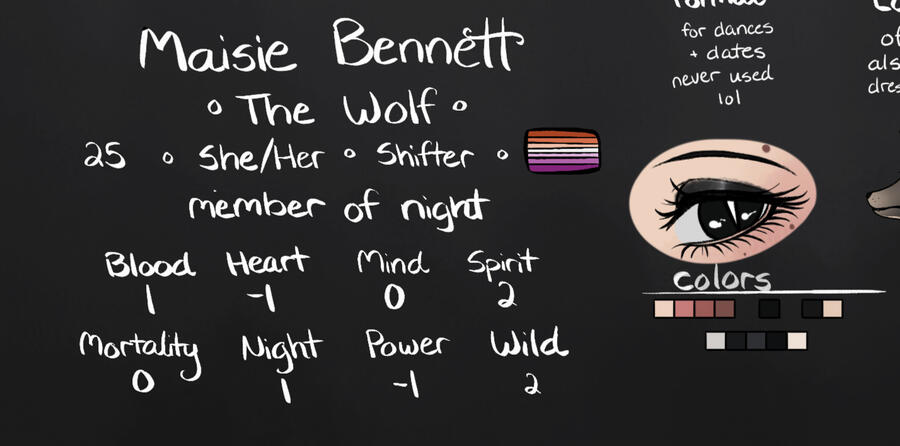 Maisie Bennett
° The Wolf °
25 ° She/Her ° Shifter °
member of night
Blood Heart Mind Spirit
1 -1 0 2
Mortality Night Power Wild
0 1 -1 2
for dances
+ dates
never used
lol
colors